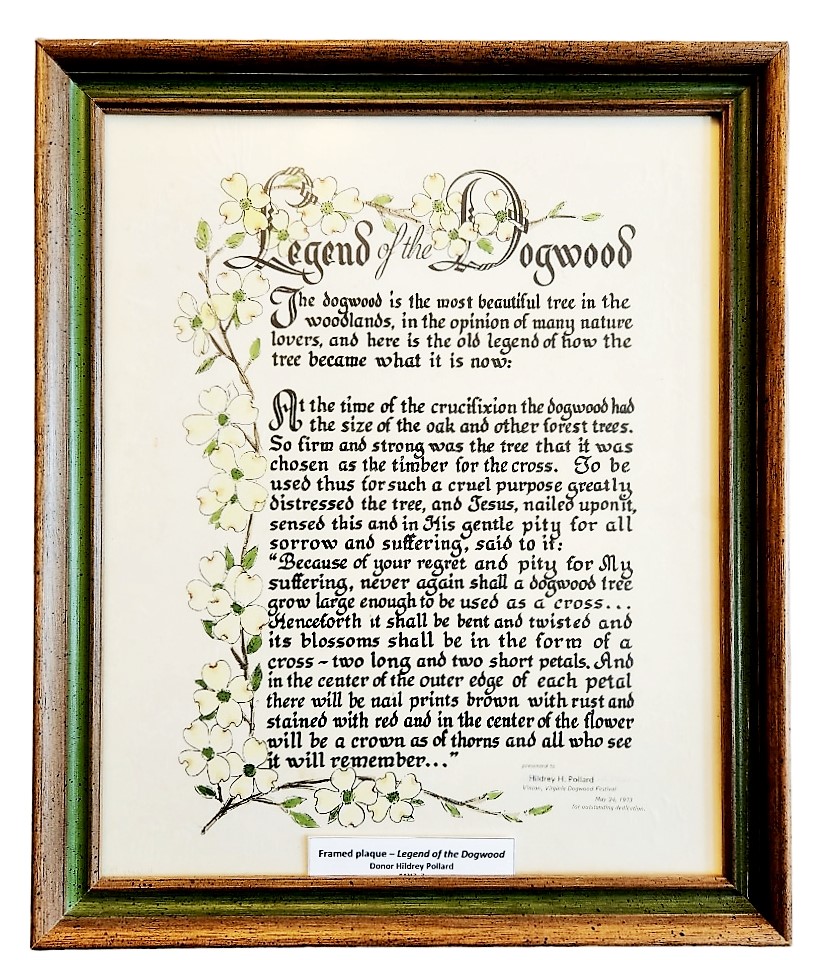 Legend of the Dogwood
The dogwood is the most beautiful tree in the
woodlands, in the opinion of many nature
lovers, and here is the old legend of how the
tree became what it is now:
At the time of the crucifixion the dogwood had
the size of the oak and other forest trees.
So firm and strong was the tree that it was
chosen as the timber for the cross. To be
used thus for such a cruel purpose greatly
distressed the tree, and Jesus, nailed upon it,
sensed this and in His gentle pity for all
sorrow and suffering, said to it:
"Because of your regret and pity for My
suffering, never again shall a dogwood tree
grow large enough to be used as a cross...
Henceforth it shall be bent and twisted and
its blossoms shall be in the form of a
cross – two long and two short petals. And
in the center of the outer edge of each petal
there will be nail prints brown with rust and
stained with red and in the center of the flower
will be a crown as of thorns and all who see
it will remember..."
presented to
Hildrey H. Pollard
Vinton, Virginia Dogwood Festival
May 26, 1973
for outstanding dedication.
Framed plaque – Legend of the Dogwood
Donor Hildrey Pollard